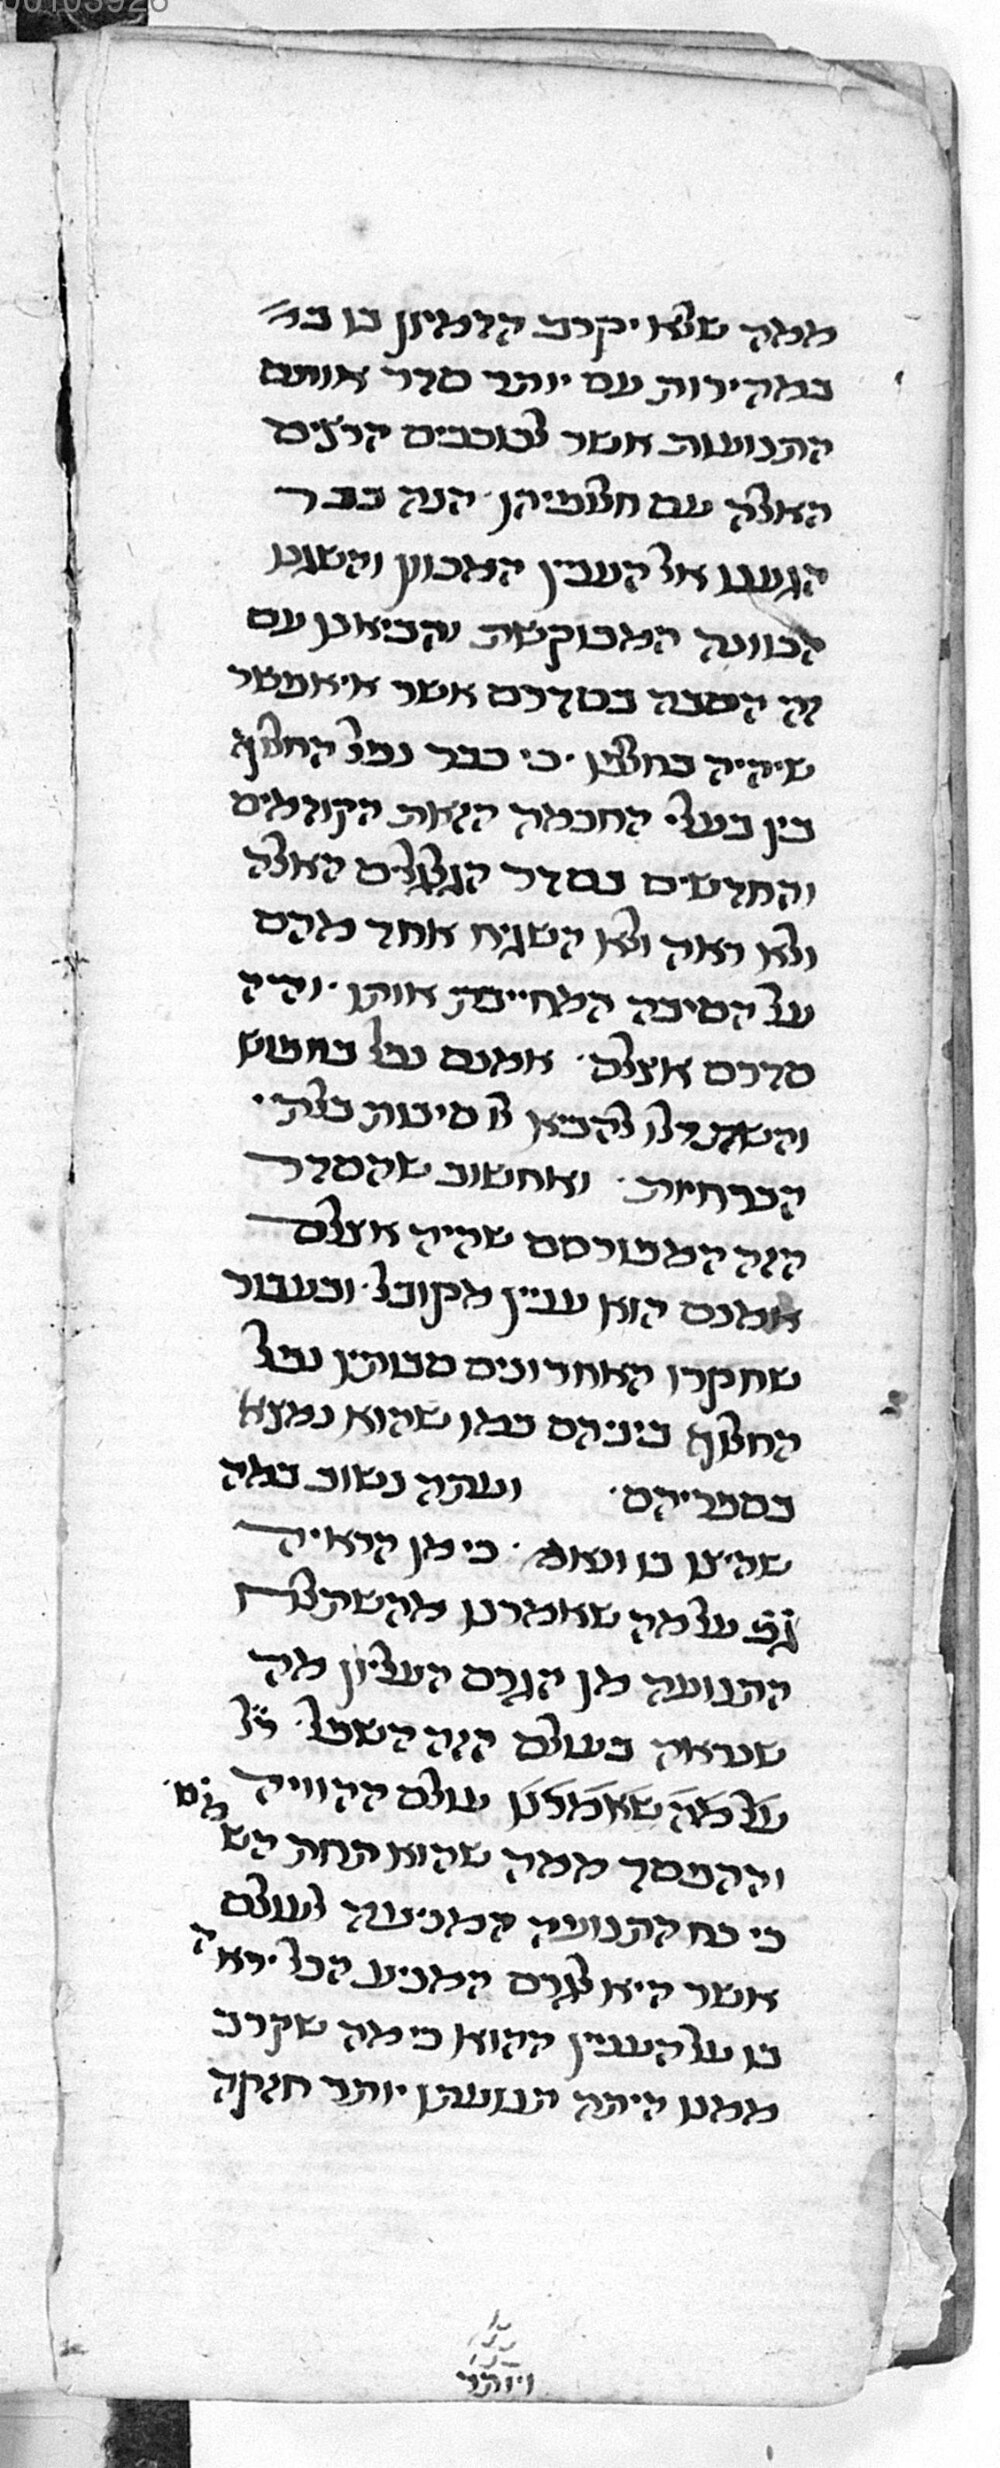 ממה שלא יקרב הדמיון בו כה״
במהירות עם יותר סדר אותם
התנועות אשר לכוכבים הרצים
האלה עם חלומיהן הנה כבר
הגענו אל העניין המכוון והשגנו
הכוונה המבוקשת והביאנו עם
זה הסבה בסדרם אשר אי אפשר
שיהיה בחלוף . כי כבר נפל החלוף
בין בעלי החכמה הזאת הקודמים
והחדשים בסדר הגלגלים האלה
ולא ראה ולא השגיח אחד מהם
על הסיבה המחייבת אותו . והיה
סדרם אצלם . אמנם נפל בחפוש
והשתדלו להביא לו סיבות בלתי
הכרחיות . ואחשוב שהסדר
הזה המפורסם שהיה אצלם
אמנם הוא עניין מקובל . ובעבור
שחקרו האחרונים סבותיו נפל
החלוף ביניהם כמו שהוא נמצא
בספריהם . ועתה נשוב במה
שהיינו בו ונאמ׳ . כי מן הראיה
גם על מה שאמרנו מהשתלח
התנועה מן הגרם העליון מה
שנראה בעולם הזה השפל . ר״ל
על מה שאמרנו עולם ההוויה
וההפסד ממה שהוא תחת הש
מים .
כי כח התנועה המניעה לעולם
אשר היא לגרם המניע הכל יראה
בו על העניין ההוא כי מה שקרב
ממנו היתה תנועתו יותר חזקה
ויותר